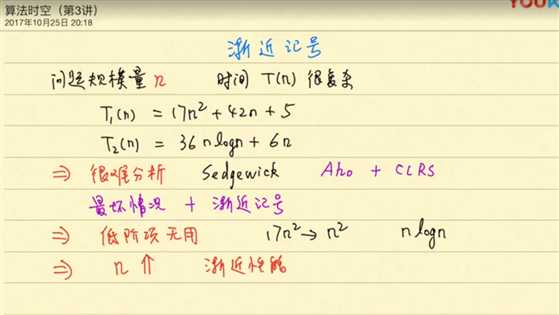 算法时空（第3讲）
YOUK
2017年10月25日 20:18
渐近记号
问题规模量 n 时间 T(n) 很复杂
T₁(n) = 17n² + 42n + 5
T₂(n) = 36 n logn + 6n
⇒ 很难分析 Sedgewick Aho + CLRS
最坏情况 + 渐近记号
⇒ 低阶项无用 17n² → n² n logn
⇒ n ↑ 渐近性能